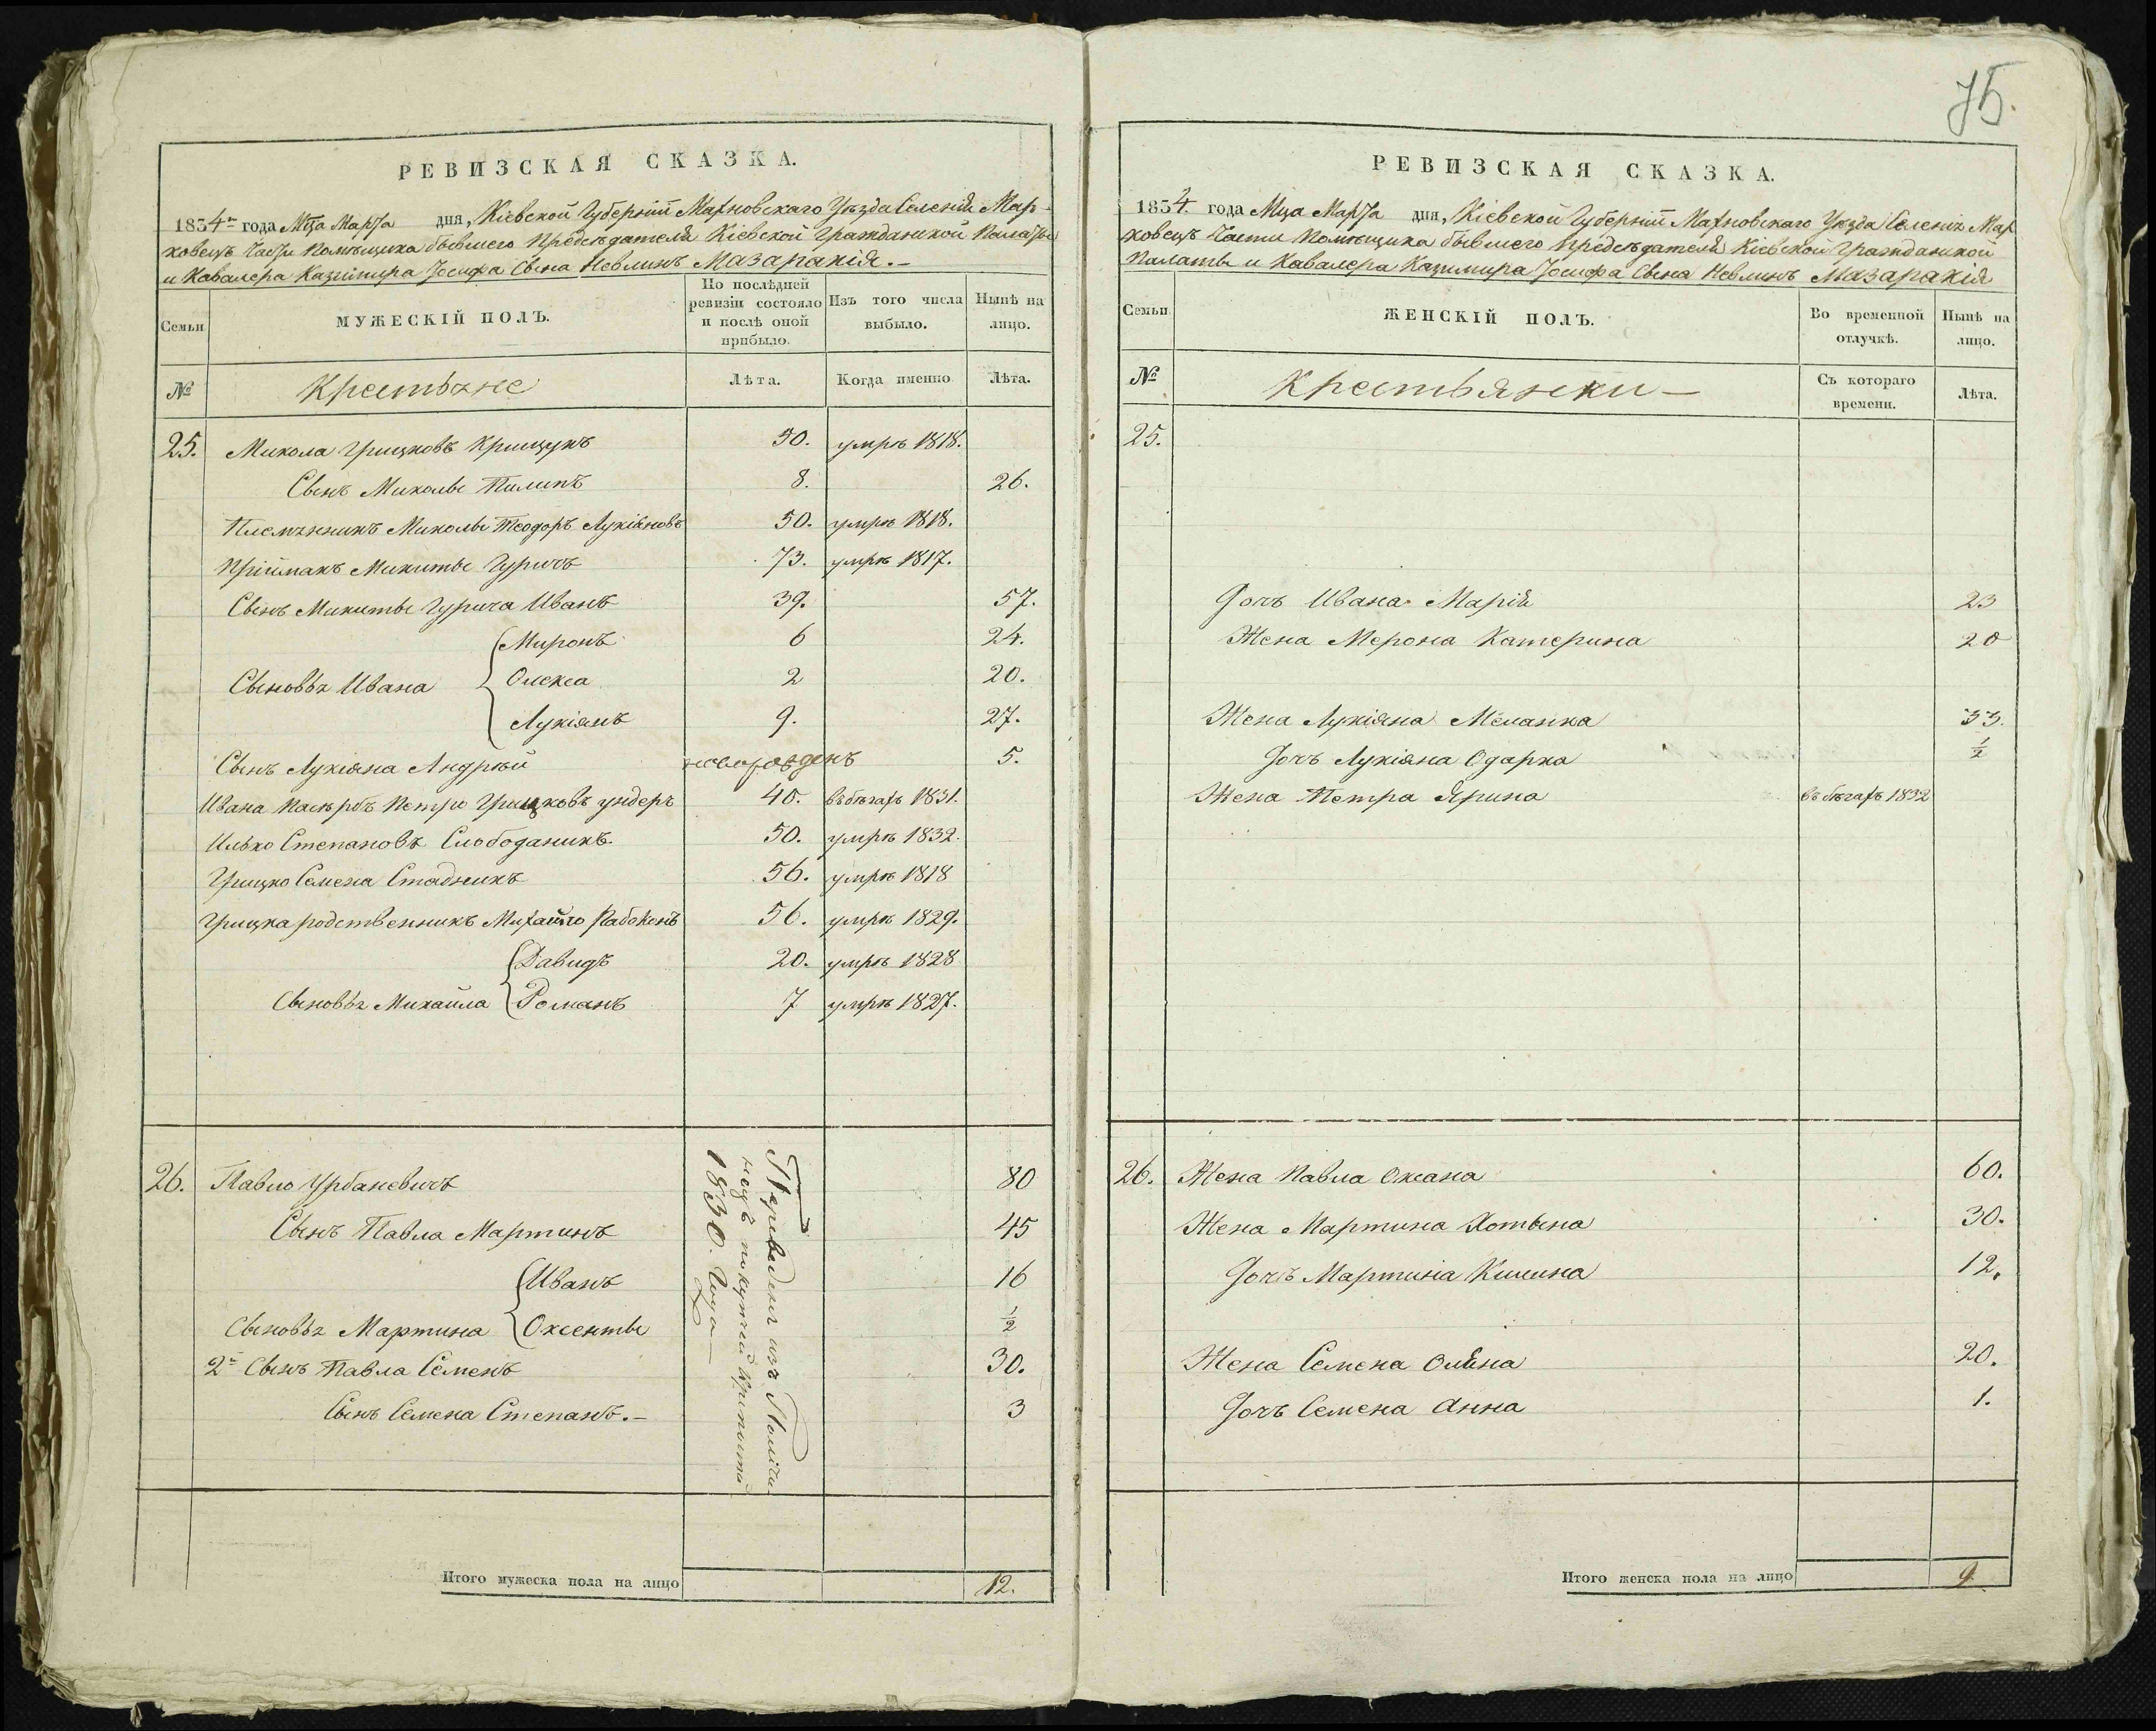 75.
РЕВИЗСКАЯ СКАЗКА.
1834го года Мца Марта дня, Кіевской Губерніи Махновскаго Уѣзда Селенія Мар-
ковецъ Части Помѣщика бывшего Предсѣдателя Кіевской Гражданской Палаты
и Кавалера Казимира Іосифа Сына Невлинъ Мазаракія.-
Семьи
МУЖЕСКІЙ ПОЛЪ.
По послѣдней ревизіи состояло и послѣ оной прибыло.
Изъ того числа выбыло.
Нынѣ на лицо.
№
Крестьяне
Лѣта.
Когда именно
Лѣта.
25. Микола Грицковъ Крищукъ 50. умрѣ 1818.
Сынъ Миколы Пилипъ 8. 26.
Племѣнникъ Миколы Теодоръ Лукіяновъ 50. умрѣ 1818.
Пріймакъ Микиты Гуричъ 73. умрѣ 1817.
Сынъ Микиты Гурича Иванъ 39. 57.
Миронъ 6 24.
Сыновья Ивана Олекса 2 20.
Лукіянъ 9. 27.
Сынъ Лукіяна Андрѣй новорожденъ 5.
Ивана Пасѣрбъ Петро Грицковъ ундеръ 40. въ бѣгахъ 1831.
Илько Степановъ Слободаникъ. 50. умрѣ 1832.
Грицко Семена Стадникъ 56. умрѣ 1818
Грицка родственникъ Михайло Рабоконь 56. умрѣ 1829.
Давидъ 20. умрѣ 1828
Сыновья Михайла Романъ 7 умрѣ 1827.
26. Павло Урбаневичъ 80
Сынъ Павла Мартинъ 45
Иванъ 16
Сыновья Мартина Оксенты 1/2
2й Сынъ Павла Семенъ 30.
Сынъ Семена Степанъ.- 3
Переведены изъ
по купчей крѣпости
1830. Года
Итого мужеска пола на лицо 12.
РЕВИЗСКАЯ СКАЗКА.
1834. года Мца Марта дня, Кіевской Губерніи Махновскаго Уѣзда Селенія Мар
ковецъ Части Помѣщика бывшего Предсѣдателя Кіевской Гражданской
Палаты и Кавалера Казимира Іосифа Сына Невлинъ Мазаракія
Семьи
ЖЕНСКІЙ ПОЛЪ.
Во временной отлучкѣ.
Нынѣ на лицо.
№
Крестьянки –
Съ котораго времени.
Лѣта.
25.
Дочь Ивана Марія 23
Жена Мерона Катерина 20
Жена Лукіяна Меланка 33.
Дочь Лукіяна Одарка 1/2
Жена Петра Ярина въ бѣгахъ 1832
26. Жена Павла Оксана 60.
Жена Мартина Хотына 30.
Дочь Мартина Килина 12.
Жена Семена Олѣна 20.
Дочь Семена Анна 1.
Итого женска пола на лицо 9.